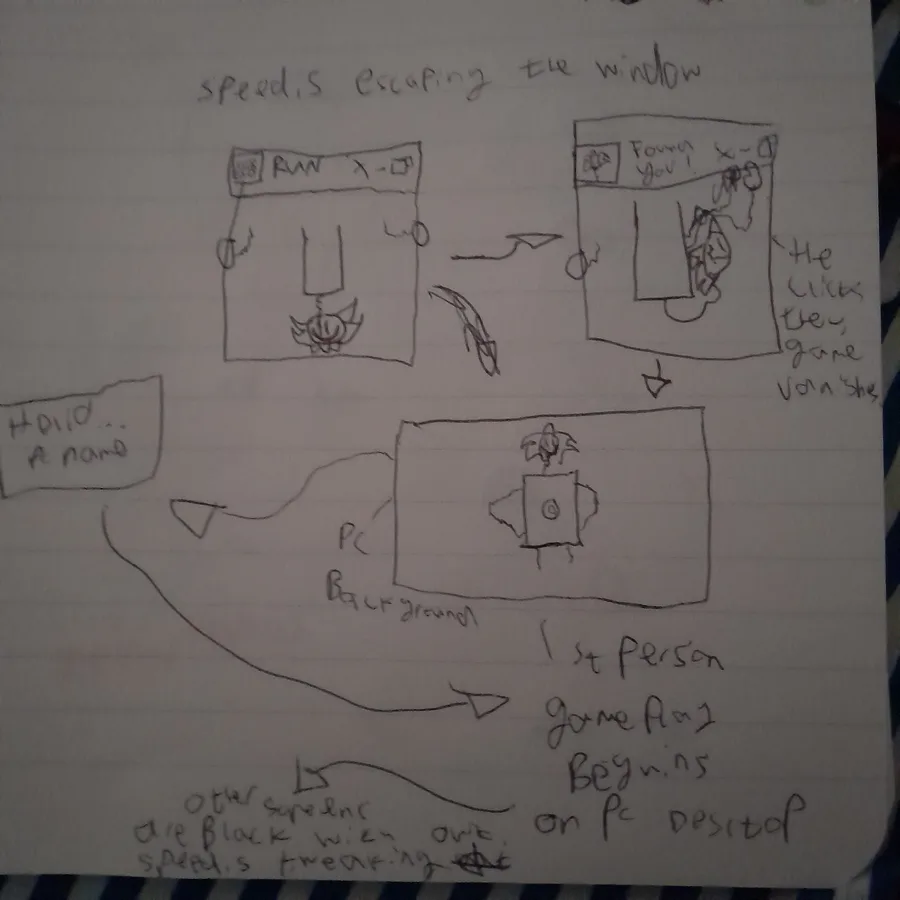 speed.s escaping the window
RUN X -
Found
you! X -
He
clicks
then,
game
vanishes
Hello...
A name
PC
Background
1st person
game play
Begnins
on PC Desktop
Other screens
are Black with
speed.s tweaking